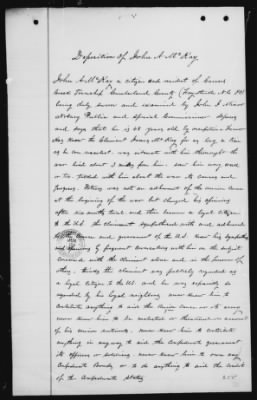 Deposition of John A McKay.
John A McKay a citizen and resident of
Creek Township Cumberland County (Fayetteville N.C. PO)
being duly sworn and examined by John J Minor
Notary Public and Special Commissioner deposes
and says that he is 48 years old by occupation Farmer
Has known the Claimant McKay for as long a time
as he can recollect was intimate with him throughout the
war lived about 2 miles from him saw him very week
or two talked with him about the war its causes and
progress. Witness was not an adherent of the union cause
at the beginning of the war but changed his opinions
after six months trial and then became a loyal citizen
to the U.S. the claimant sympathized with and adhered
to the cause and government of the U.S. knew his sympathies
and opinions by frequent conversations with him on the subject
conversed with the claimant alone and in the presence of
others; thinks the claimant was publicly regarded as
a loyal citizen to the U.S. and he was especially so
regarded by his loyal neighbors never knew him to
contribute anything to aid the Union cause or its army
never knew him to be molested or threatened on account
of his union sentiments. never knew him to contribute
anything in any way to aid the Confederate government
its officers or soldiers never knew him to own any
Confederate Bonds, or to do anything to aid the credit
of the Confederate States